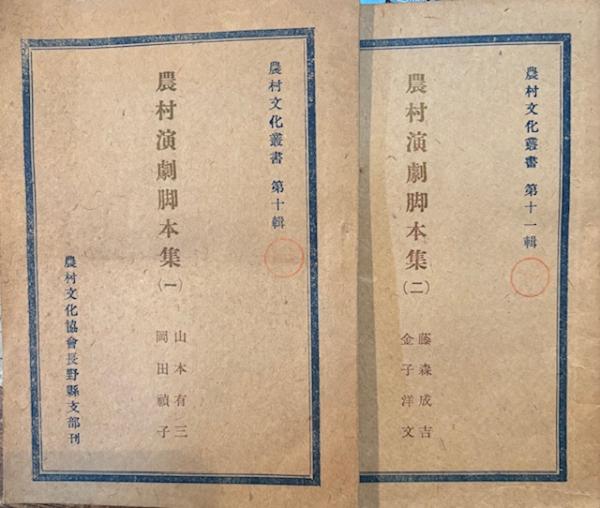 農村文化叢書 第十輯
農村演劇脚本集(一)
山本有三
岡田禎子
農村文化協會長野縣支部刊
農村文化叢書 第十一輯
農村演劇脚本集(二)
藤森成吉
金子洋文